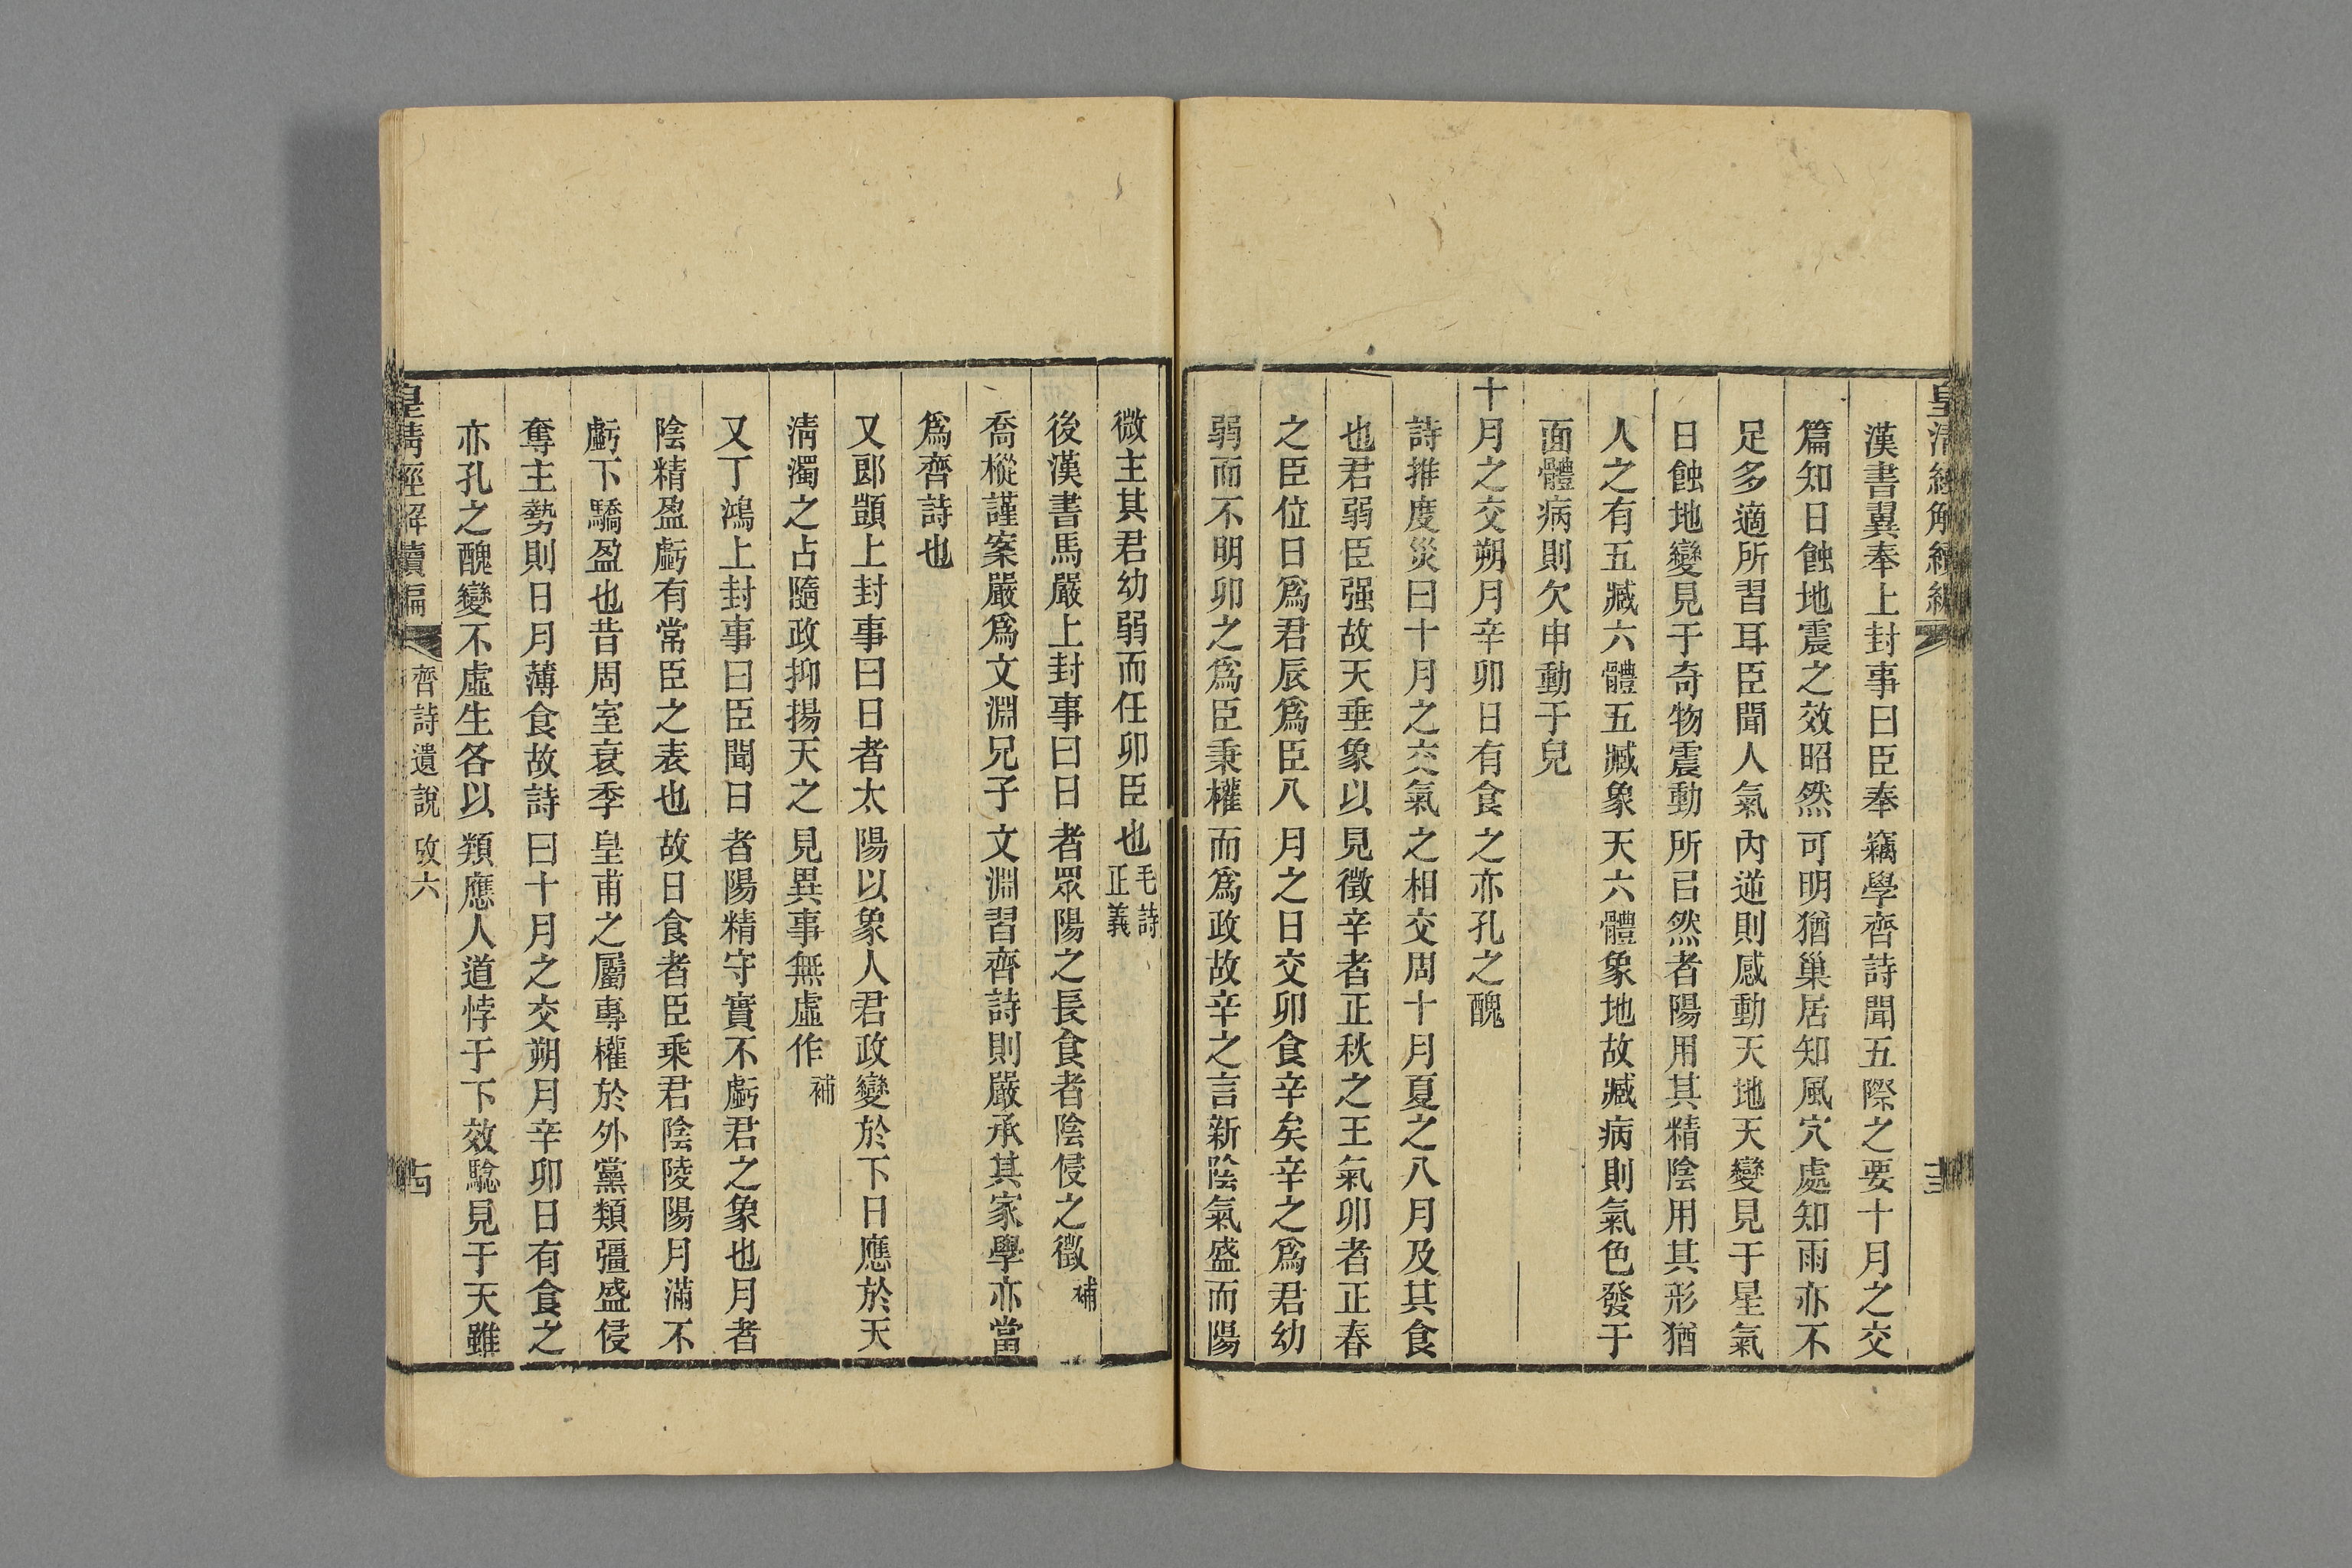 皇清經解續編
漢書翼奉上封事曰臣奉竊學齊詩聞五際之要十月之交
篇知日蝕地震之效昭然可明猶巢居知風穴處知雨亦不
足多適所習耳臣聞人氣內逆則感動天地天變見于星氣
日蝕地變見于奇物震動所㠯然者陽用其精陰用其形猶
人之有五臧六體五臧象天六體象地故臧病則氣色發于
面體病則欠申動于皃
十月之交朔月辛卯日有食之亦孔之醜
詩推度災曰十月之交氣之相交周十月夏之八月及其食
也君弱臣强故天垂象以見徵辛者正秋之王氣卯者正春
之臣位日爲君辰爲臣八月之日交卯食辛矣辛之爲君幼
弱而不明卯之爲臣秉權而爲政故辛之言新陰氣盛而陽
微主其君幼弱而任卯臣也毛詩正義
後漢書馬嚴上封事曰日者眾陽之長食者陰侵之徵補
喬樅謹案嚴爲文淵兄子文淵習齊詩則嚴承其家學亦當
爲齊詩也
又郎顗上封事曰日者太陽以象人君政變於下日應於天
清濁之占隨政抑揚天之見異事無虛作補
又丁鴻上封事曰臣聞日者陽精守實不虧君之象也月者
陰精盈虧有常臣之表也故日食者臣乘君陰陵陽月滿不
虧下驕盈也昔周室衰季皇甫之屬專權於外黨類彊盛侵
奪主勢則日月薄食故詩曰十月之交朔月辛卯日有食之
亦孔之醜變不虛生各以類應人道悖于下效驗見于天雖
皇清經解續編 齊詩遺說 攷六